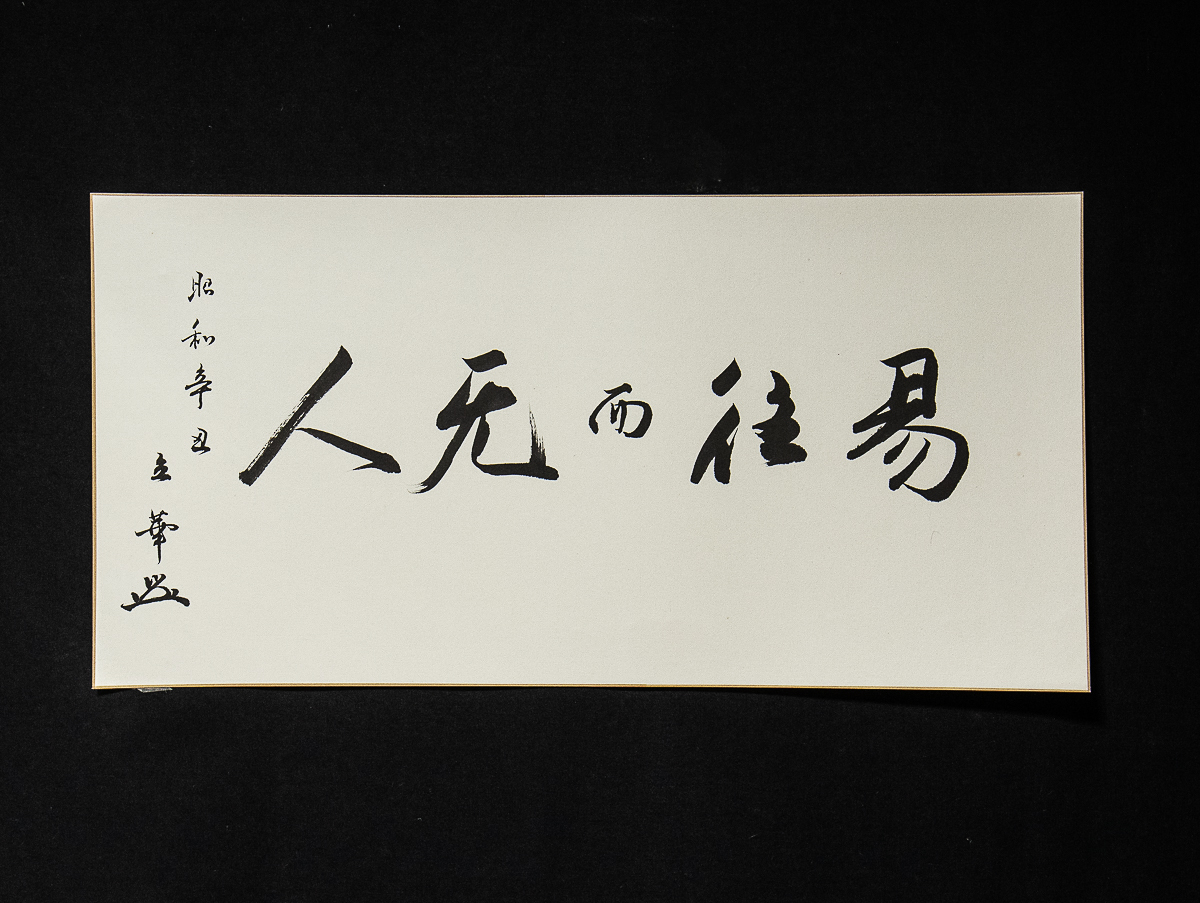 易往而无人
昭和辛丑
華